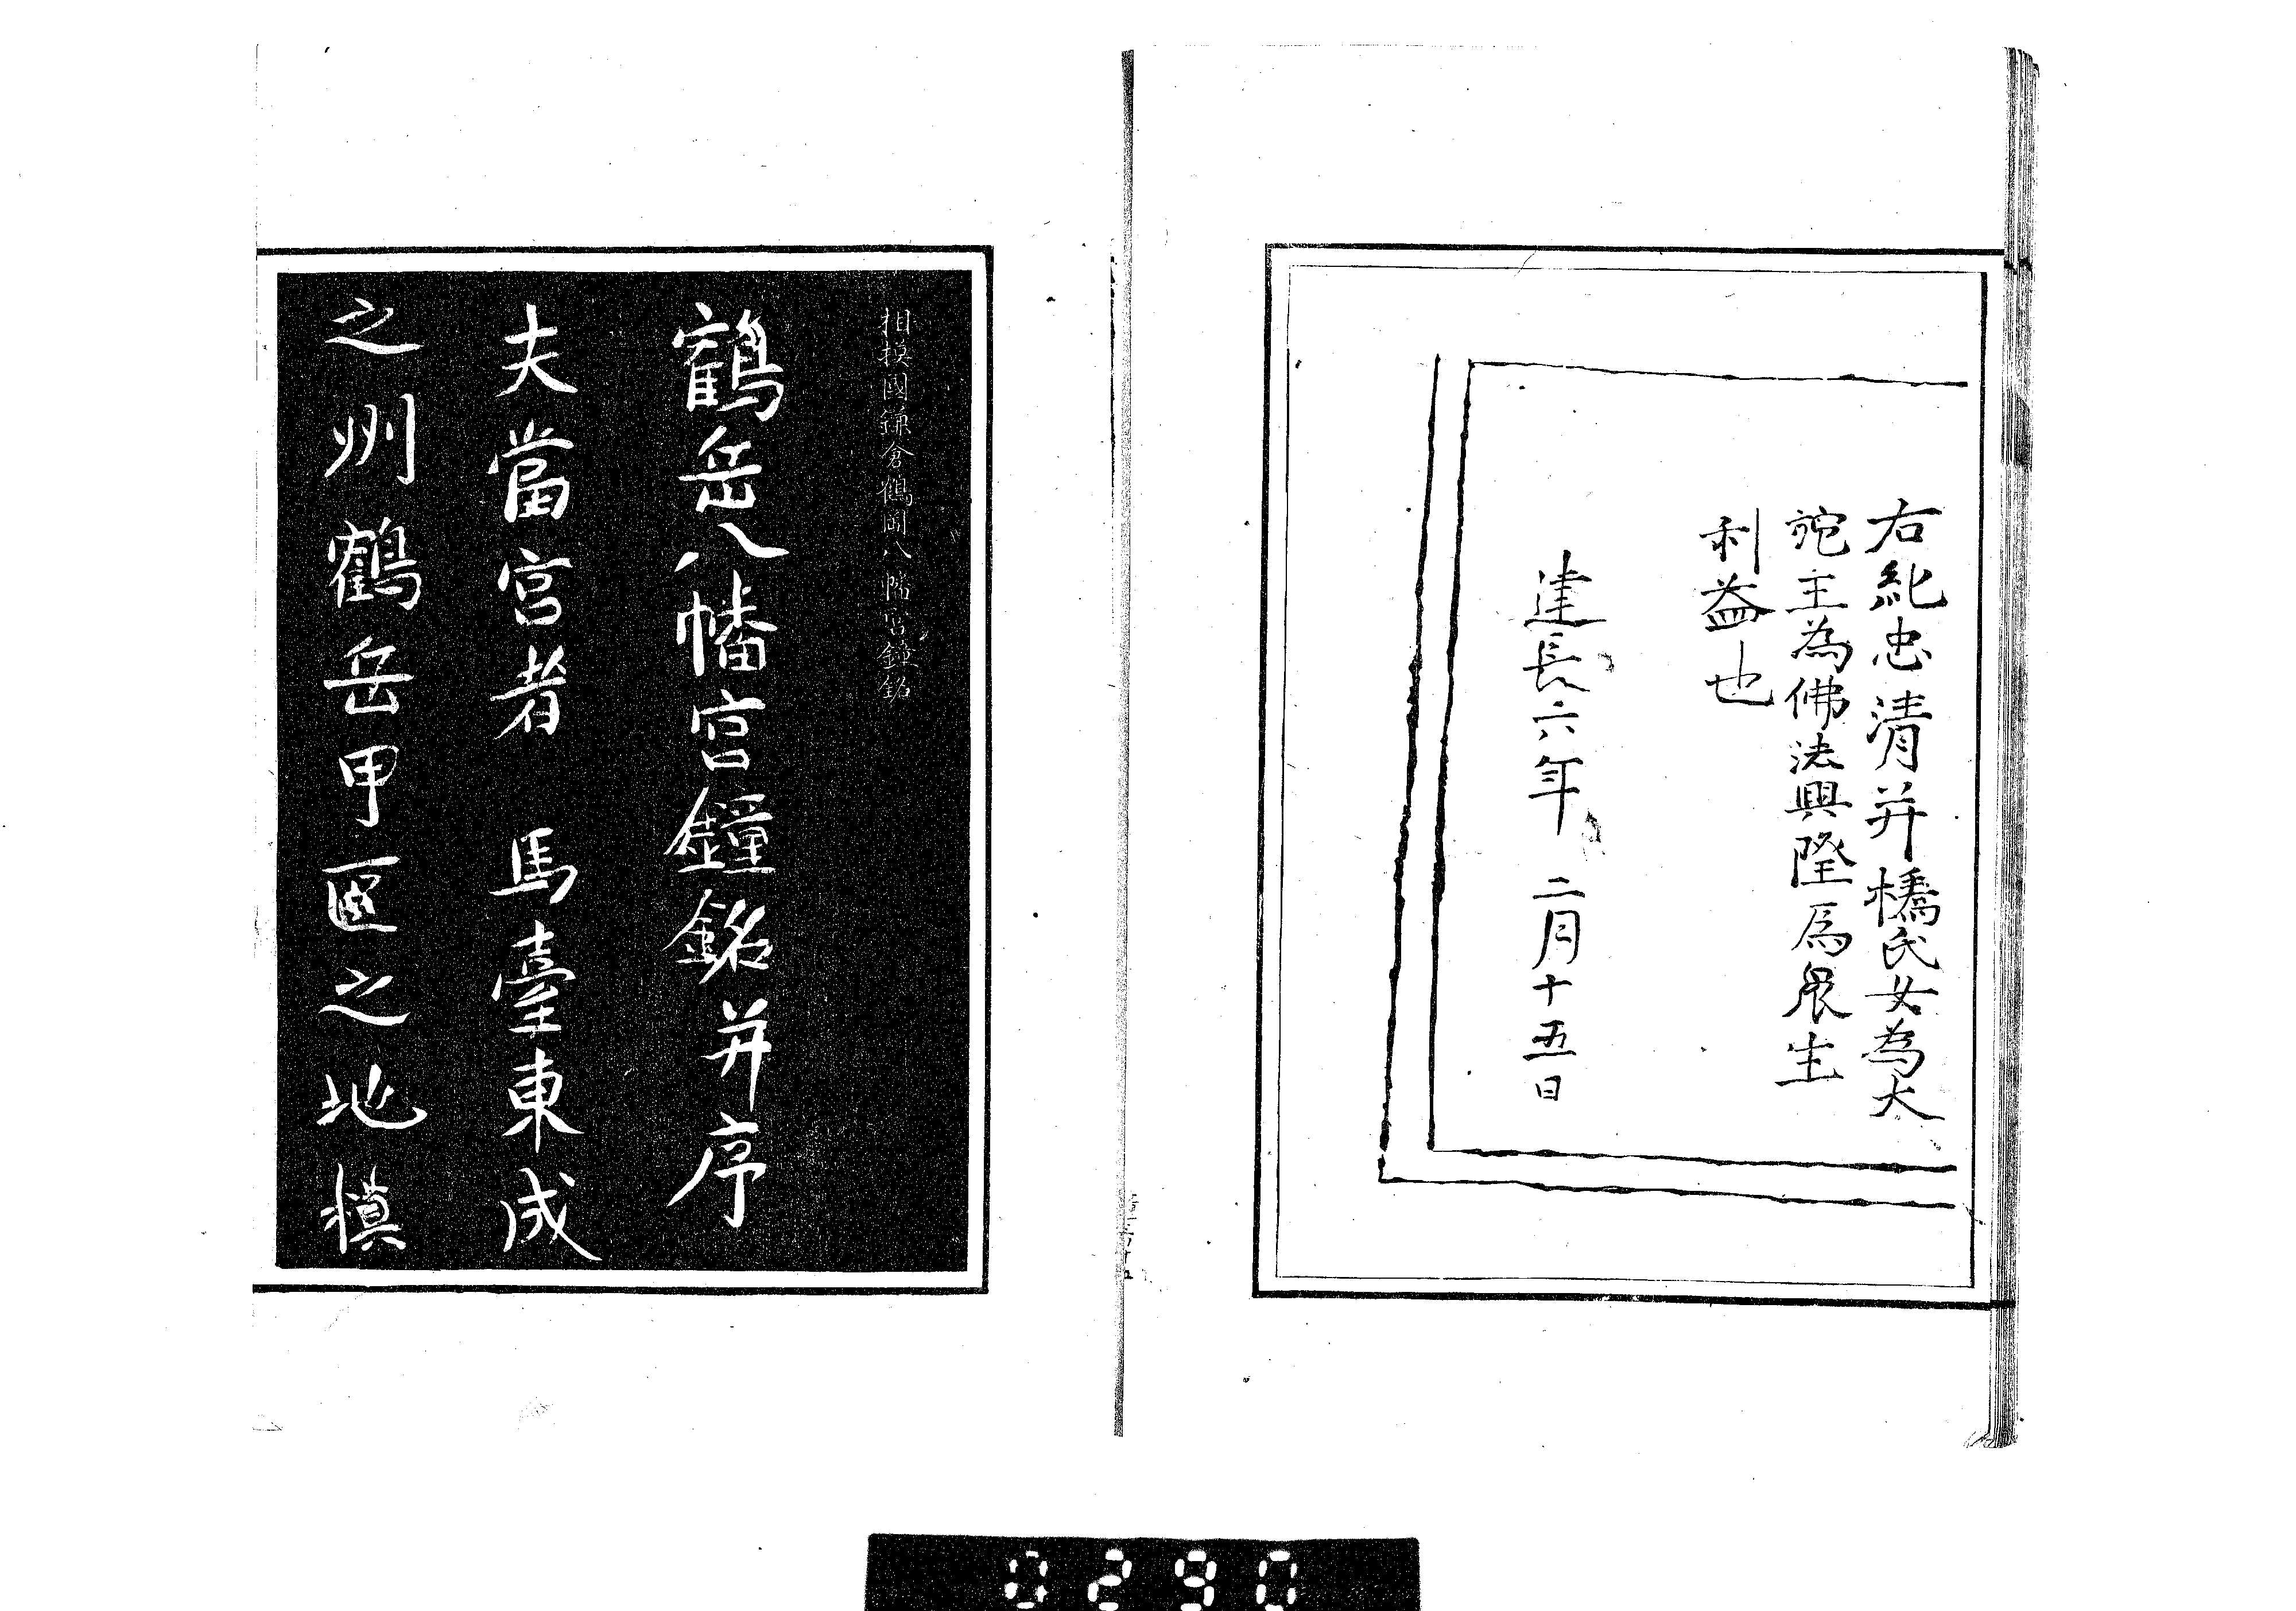 右紀忠清并橘氏女為大
施主為佛法興隆為衆生
利益也
建長六年二月十五日
相摸國鎌倉鶴岡八幡宮鐘銘
鶴岳八幡宮鐘銘并序
夫當宮者 馬臺東成
之州鶴岳甲區之地摸
0290